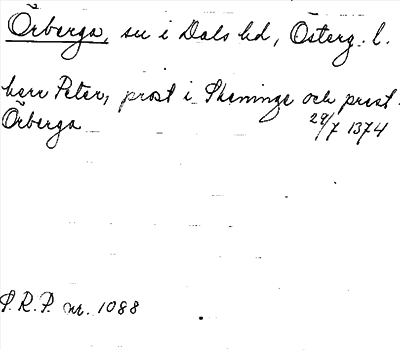 Örberga, sn i Dals hd, Österg. l.
herr Peter, prost i Skeninge och prest
Örberga 29/7 1374
S.R.P. nr. 1088